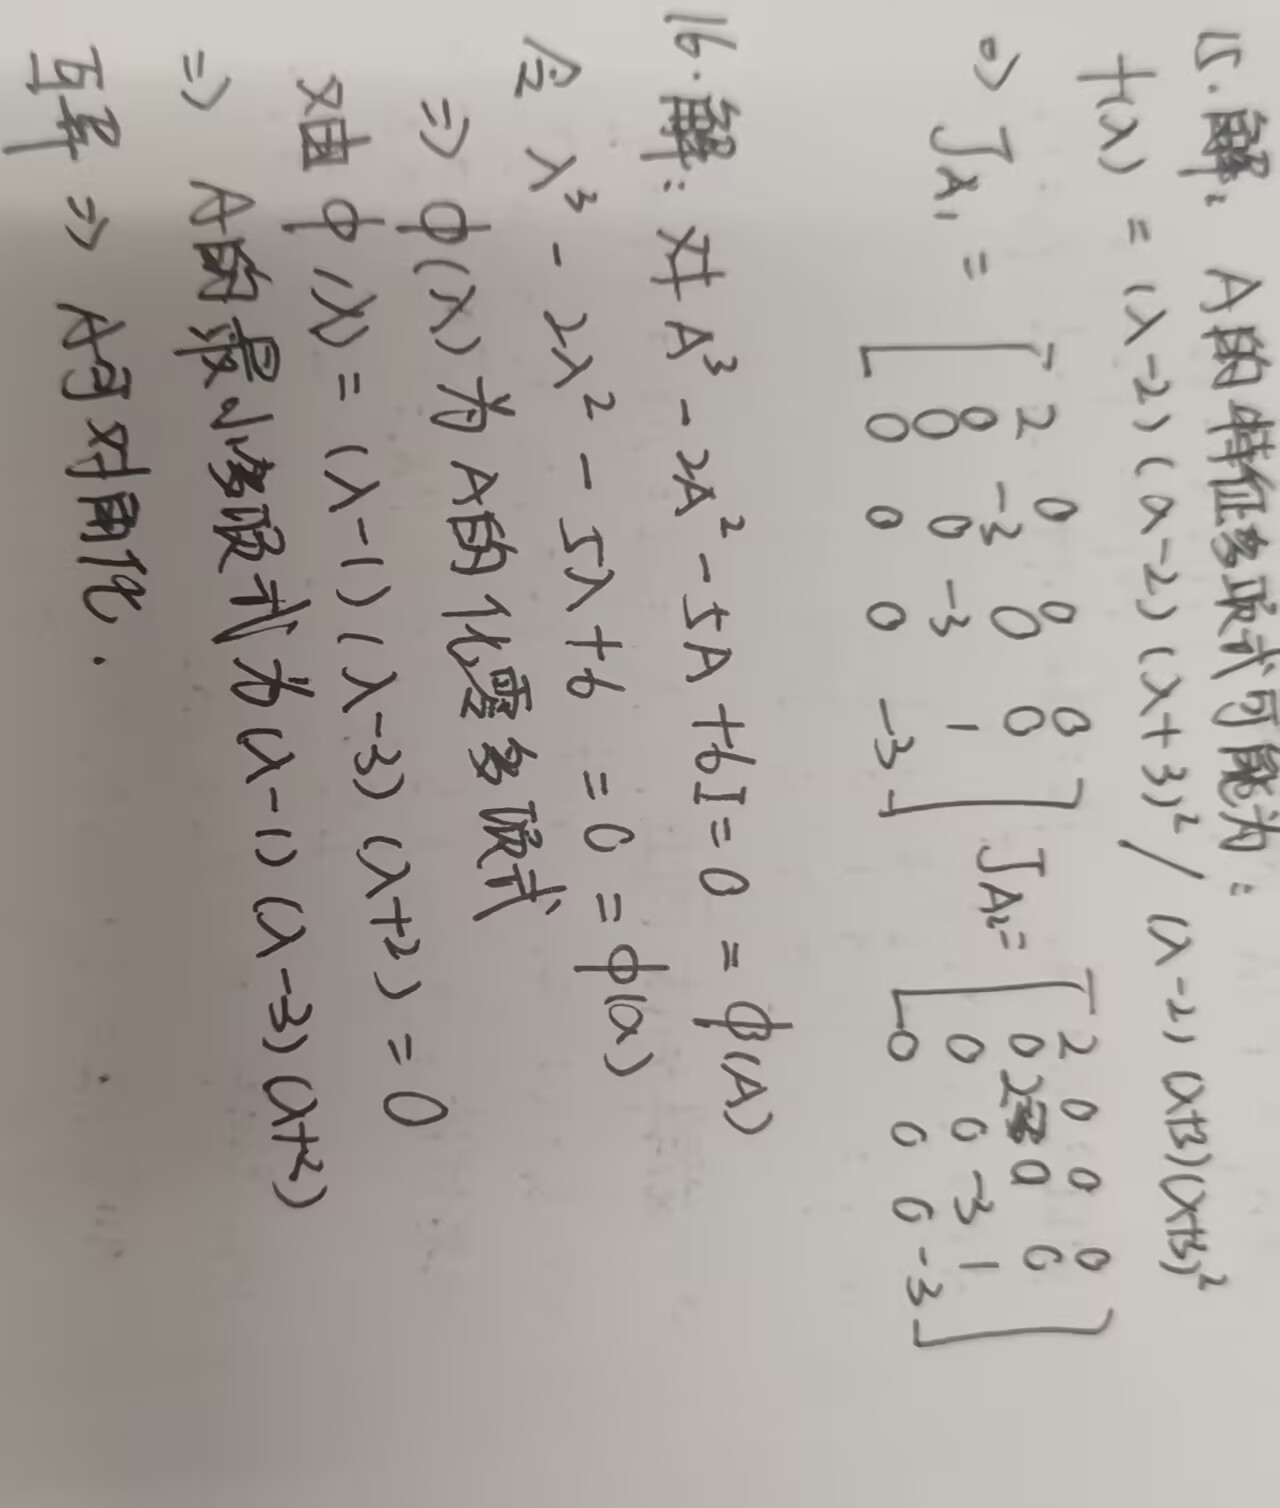 15.解: A的特征多项式可能为:
f(λ) = (λ-2)(λ-2)(λ+3)² / (λ-2)(λ+3)(λ+3)²
⇒ J_A₁ = [2 0 0 0
0 -3 0 0
0 0 -3 1
0 0 0 -3] J_A₂= [2 0 0 0
0 2 0 0
0 0 -3 1
0 0 0 -3]
16.解: 对A³-2A²-5A+6I=0 = φ(A)
令 λ³-2λ²-5λ+6 =0 = φ(λ)
⇒ φ(λ)为A的化零多项式
又由φ(λ)=(λ-1)(λ-3)(λ+2)=0
⇒ A的最小多项式为(λ-1)(λ-3)(λ+2)
互异 ⇒ A可对角化.